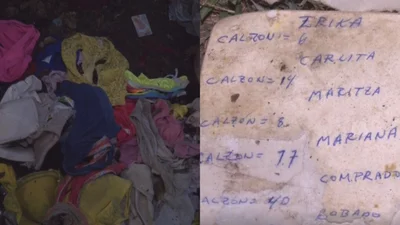 ERIKA
CALZON = 6
CARLITA
CALZON = 14
MARITZA
CALZON = 8
MARIANA
CALZON = 17
COMPRADO
CALZON = 40
ROBADO